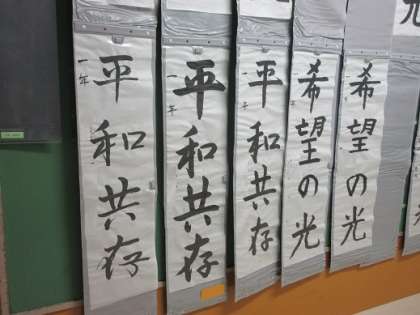 平和共存
一年
平和共存
平和共存
希望の光
希望の光